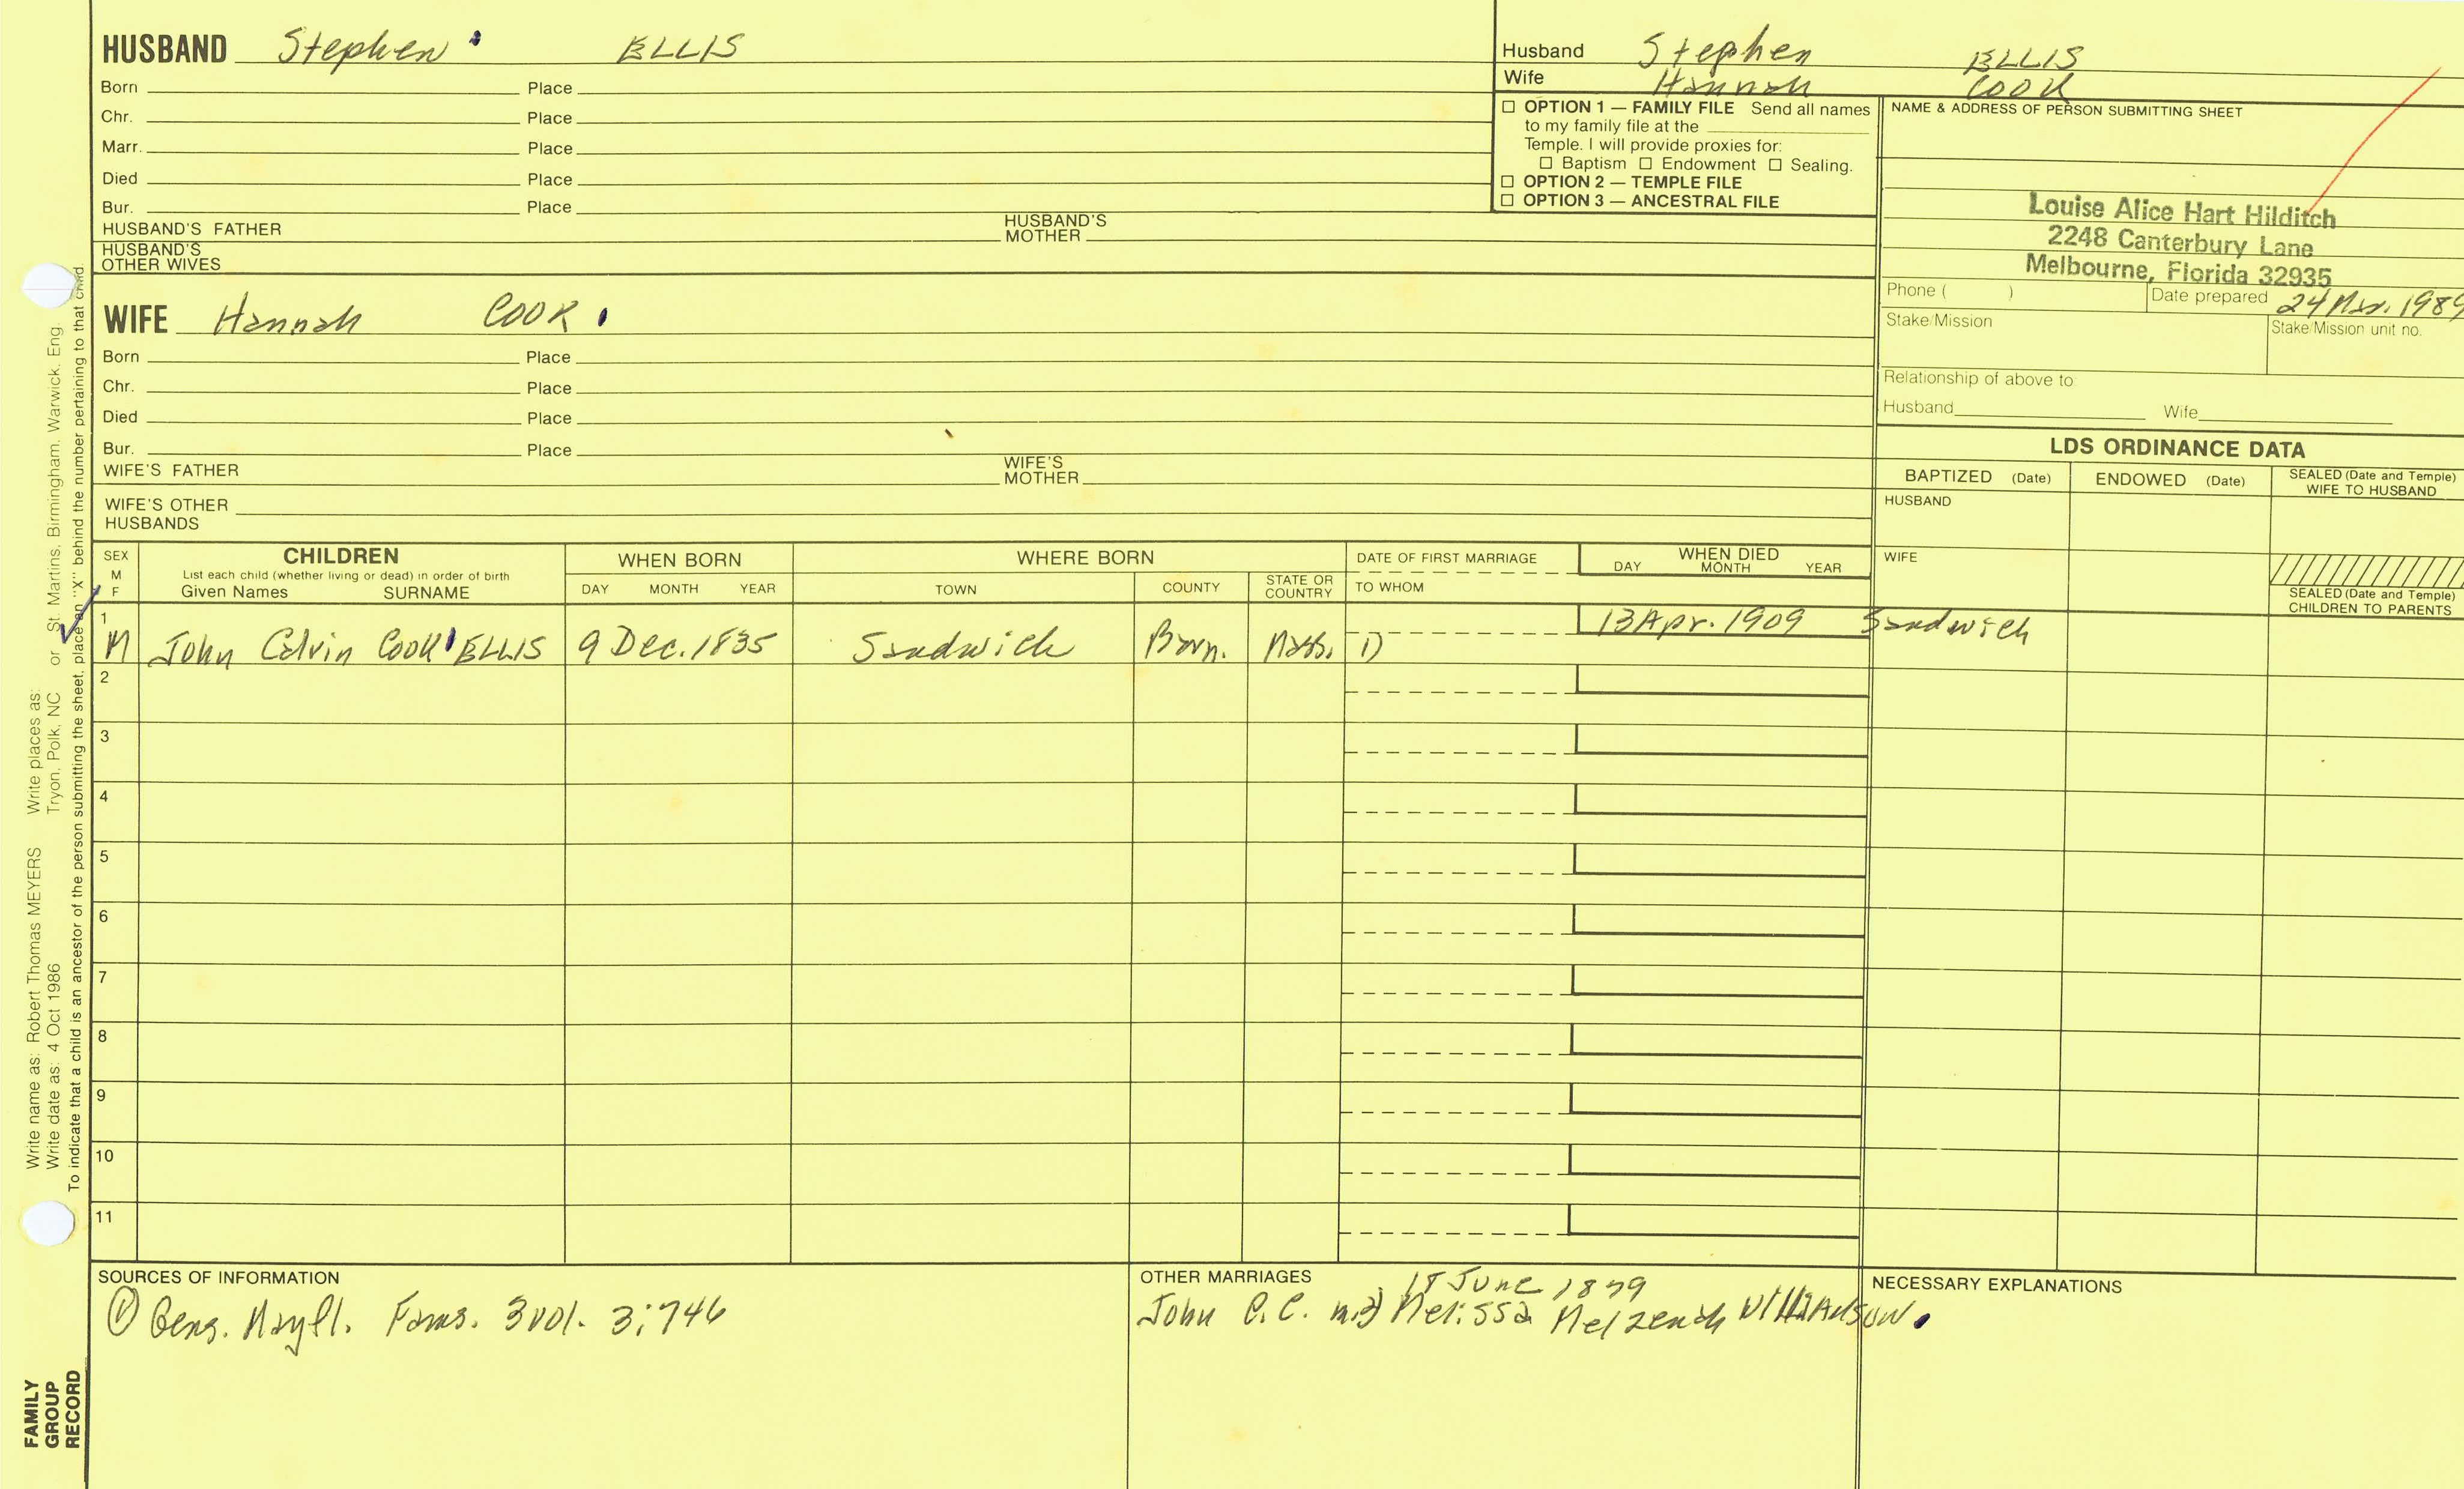 HUSBAND Stephen ELLIS
Born Place
Chr. Place
Marr. Place
Died Place
Bur. Place
HUSBAND'S FATHER HUSBAND'S MOTHER
HUSBAND'S OTHER WIVES
Husband Stephen ELLIS
Wife Hannah COOK
☐ OPTION 1 — FAMILY FILE Send all names
to my family file at the
Temple. I will provide proxies for:
☐ Baptism ☐ Endowment ☐ Sealing.
☐ OPTION 2 — TEMPLE FILE
☐ OPTION 3 — ANCESTRAL FILE
NAME & ADDRESS OF PERSON SUBMITTING SHEET
Louise Alice Hart Hilditch
2248 Canterbury Lane
Melbourne, Florida 32935
Phone ( ) Date prepared 24 1989
Stake/Mission Stake/Mission unit no.
Relationship of above to:
Husband Wife
WIFE Hannah COOK
Born Place
Chr. Place
Died Place
Bur. Place
WIFE'S FATHER WIFE'S MOTHER
WIFE'S OTHER
HUSBANDS
LDS ORDINANCE DATA
BAPTIZED (Date) ENDOWED (Date) SEALED (Date and Temple)
WIFE TO HUSBAND
HUSBAND
WIFE
SEALED (Date and Temple)
CHILDREN TO PARENTS
SEX
M
F
CHILDREN
List each child (whether living or dead) in order of birth
Given Names SURNAME
WHEN BORN
DAY MONTH YEAR
WHERE BORN
TOWN COUNTY STATE OR COUNTRY
DATE OF FIRST MARRIAGE
TO WHOM
WHEN DIED
DAY MONTH YEAR
1 13 Apr. 1909 Sandwich
M John Calvin Cook ELLIS 9 Dec. 1835 Sandwich Barn. Mass. 1)
2
3
4
5
6
7
8
9
10
11
SOURCES OF INFORMATION
① Gens. Mayfl. Fams. 3 vol. 3:746
OTHER MARRIAGES 18 June 1879
John C.C. m.2) Melissa Melzenah WILLIAMSON
NECESSARY EXPLANATIONS
Write name as: Robert Thomas MEYERS Write places as:
Write date as: 4 Oct 1986 Tryon, Polk, NC or St. Martins, Birmingham, Warwick, Eng.
To indicate that a child is an ancestor of the person submitting the sheet, place an "X" behind the number pertaining to that child.
FAMILY
GROUP
RECORD